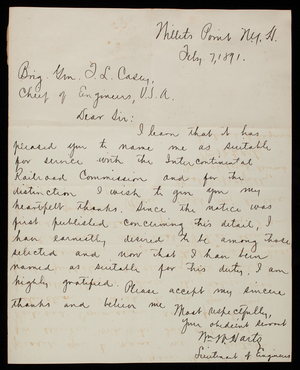 Willets Point N.Y. H.
Feby 7, 1891.
Brig. Gen. T. L. Casey,
Chief of Engineers, U.S.A.
Dear Sir:
I learn that it has
pleased you to name me as suitable
for service with the Intercontinental
Railroad Commission and for the
distinction I wish to give you my
heartfelt thanks. Since the notice was
first published concerning this detail, I
have earnestly desired to be among those
selected and now that I have been
named as suitable for this duty, I am
highly gratified. Please accept my sincere
thanks and believe me
Most respectfully,
Your obedient servant
Wm. W. Harts
Lieutenant of Engineers